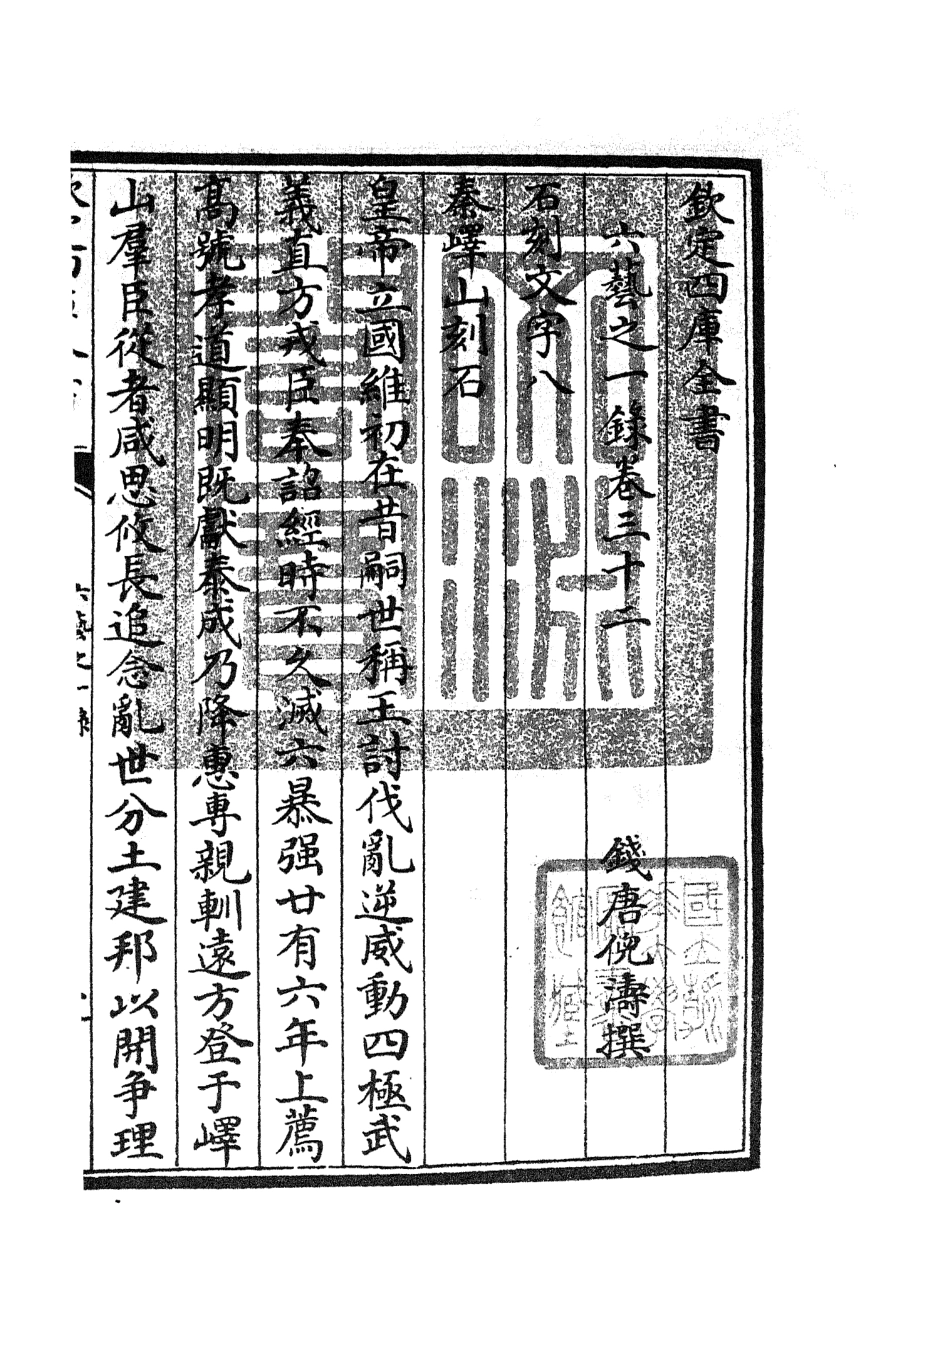 欽定四庫全書
六藝之一錄卷三十二
錢唐倪濤撰
石刻文字八
秦嶧山刻石
皇帝立國維初在昔嗣世稱王討伐亂逆威動四極武
義直方戎臣奉詔經時不久滅六暴强廿有六年上薦
高號孝道顯明既獻泰成乃降惠專親軔遠方登于嶧
山羣臣從者咸思攸長追念亂世分土建邦以開争理
六藝之一錄